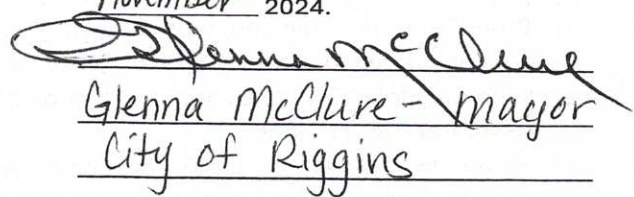 November 2024.
Glenna McClure
Glenna McClure - mayor
City of Riggins